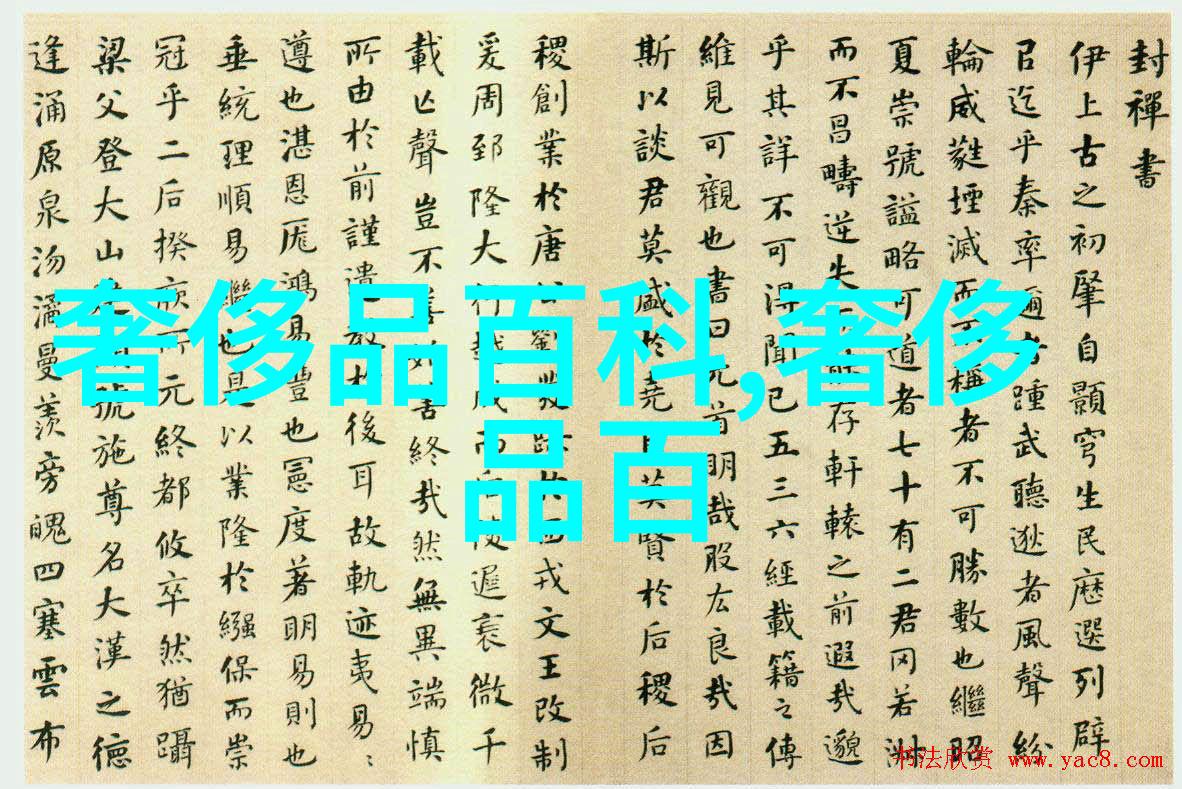 封禪書
伊上古之初肇自顥穹生民歷選列辟
以迄乎秦率邇者踵武聽逖者風聲紛
輪威蕤堙滅而不稱者不可勝數也繼昭
夏崇號謚略可道者七十有二君罔若淑
而不昌疇逆失而能存軒轅之前遐哉邈
乎其詳不可得聞已五三六經載籍之傳
維見可觀也書曰元首明哉股厷良哉因
斯以談君莫盛於堯臣莫賢於后稷后
稷創業於唐公劉發跡於西戎文王改制
爰周郅隆大行越成而后陵遲衰微千
載亡聲豈不善始善終哉然無異端慎
所由於前謹遺教於後耳故軌迹夷易
遵也湛恩厖鴻易豐也憲度著明易則也
垂統理順易繼也是以業隆於繈保而崇
冠乎二后揆厥所元終都攸卒然猶躡
梁父登大山建顯號施尊名大漢之德
逢涌原泉沕潏曼羨旁魄四塞雲布
奢侈品百科,奢侈
品百
书法欣赏 www.yac8.com